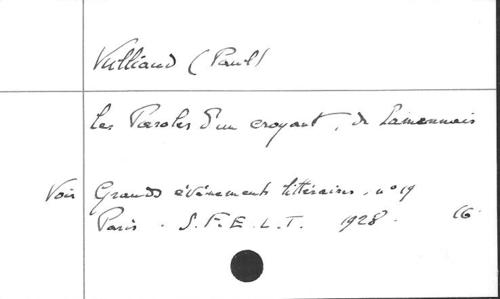 Vulliaud (Paul)
Les Paroles d'un croyant, de Lamennais
Voir Grands événements littéraires. n° 19
Paris. S.F.E.L.T. 1928. 16